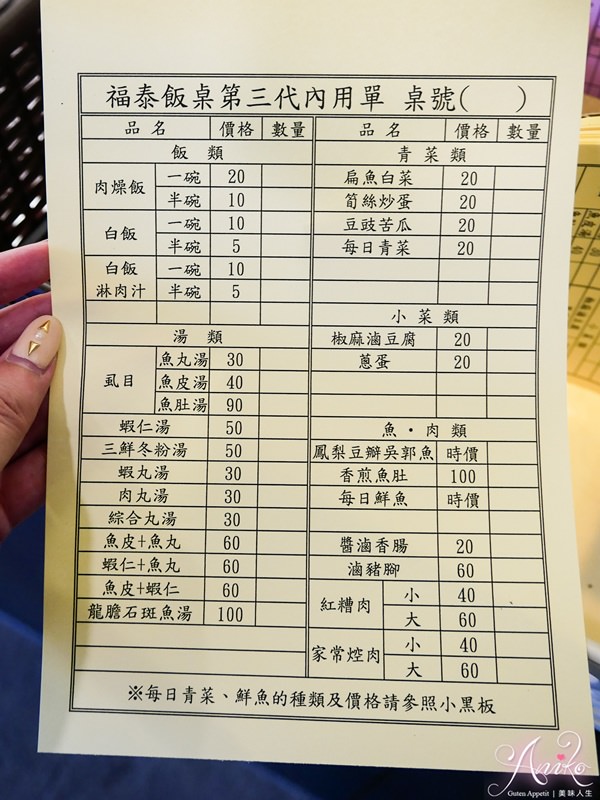 福泰飯桌第三代內用單 桌號( )
品名 價格 數量
飯 類
肉燥飯 一碗 20
半碗 10
白飯 一碗 10
半碗 5
白飯淋肉汁 一碗 10
半碗 5
湯 類
虱目 魚丸湯 30
魚皮湯 40
魚肚湯 90
蝦仁湯 50
三鮮冬粉湯 50
蝦丸湯 30
肉丸湯 30
綜合丸湯 30
魚皮+魚丸 60
蝦仁+魚丸 60
魚皮+蝦仁 60
龍膽石斑魚湯 100
品名 價格 數量
青菜類
扁魚白菜 20
筍絲炒蛋 20
豆豉苦瓜 20
每日青菜 20
小菜類
椒麻滷豆腐 20
蔥蛋 20
魚·肉類
鳳梨豆瓣吳郭魚 時價
香煎魚肚 100
每日鮮魚 時價
醬滷香腸 20
滷豬腳 60
紅糟肉 小 40
大 60
家常焢肉 小 40
大 60
※每日青菜、鮮魚的種類及價格請參照小黑板
Aniko
Guten Appetit | 美味人生